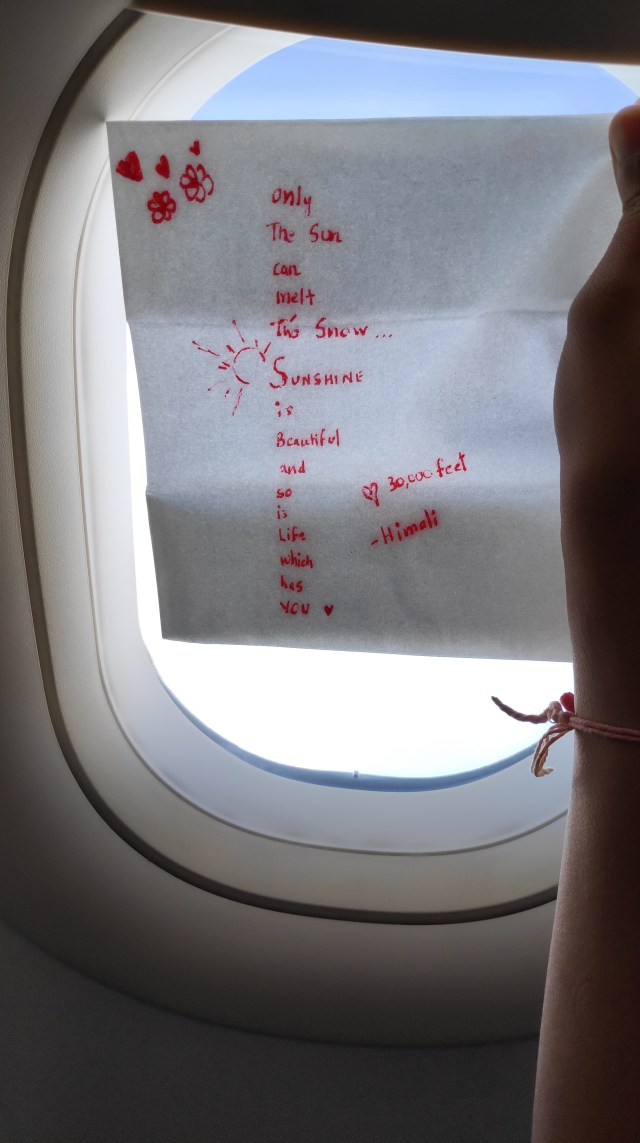 only
The Sun
can
melt
The Snow...
SUNSHINE
is
Beautiful
and
so
is
Life
which
has
YOU ♥
♡ 30,000 feet
- Himali